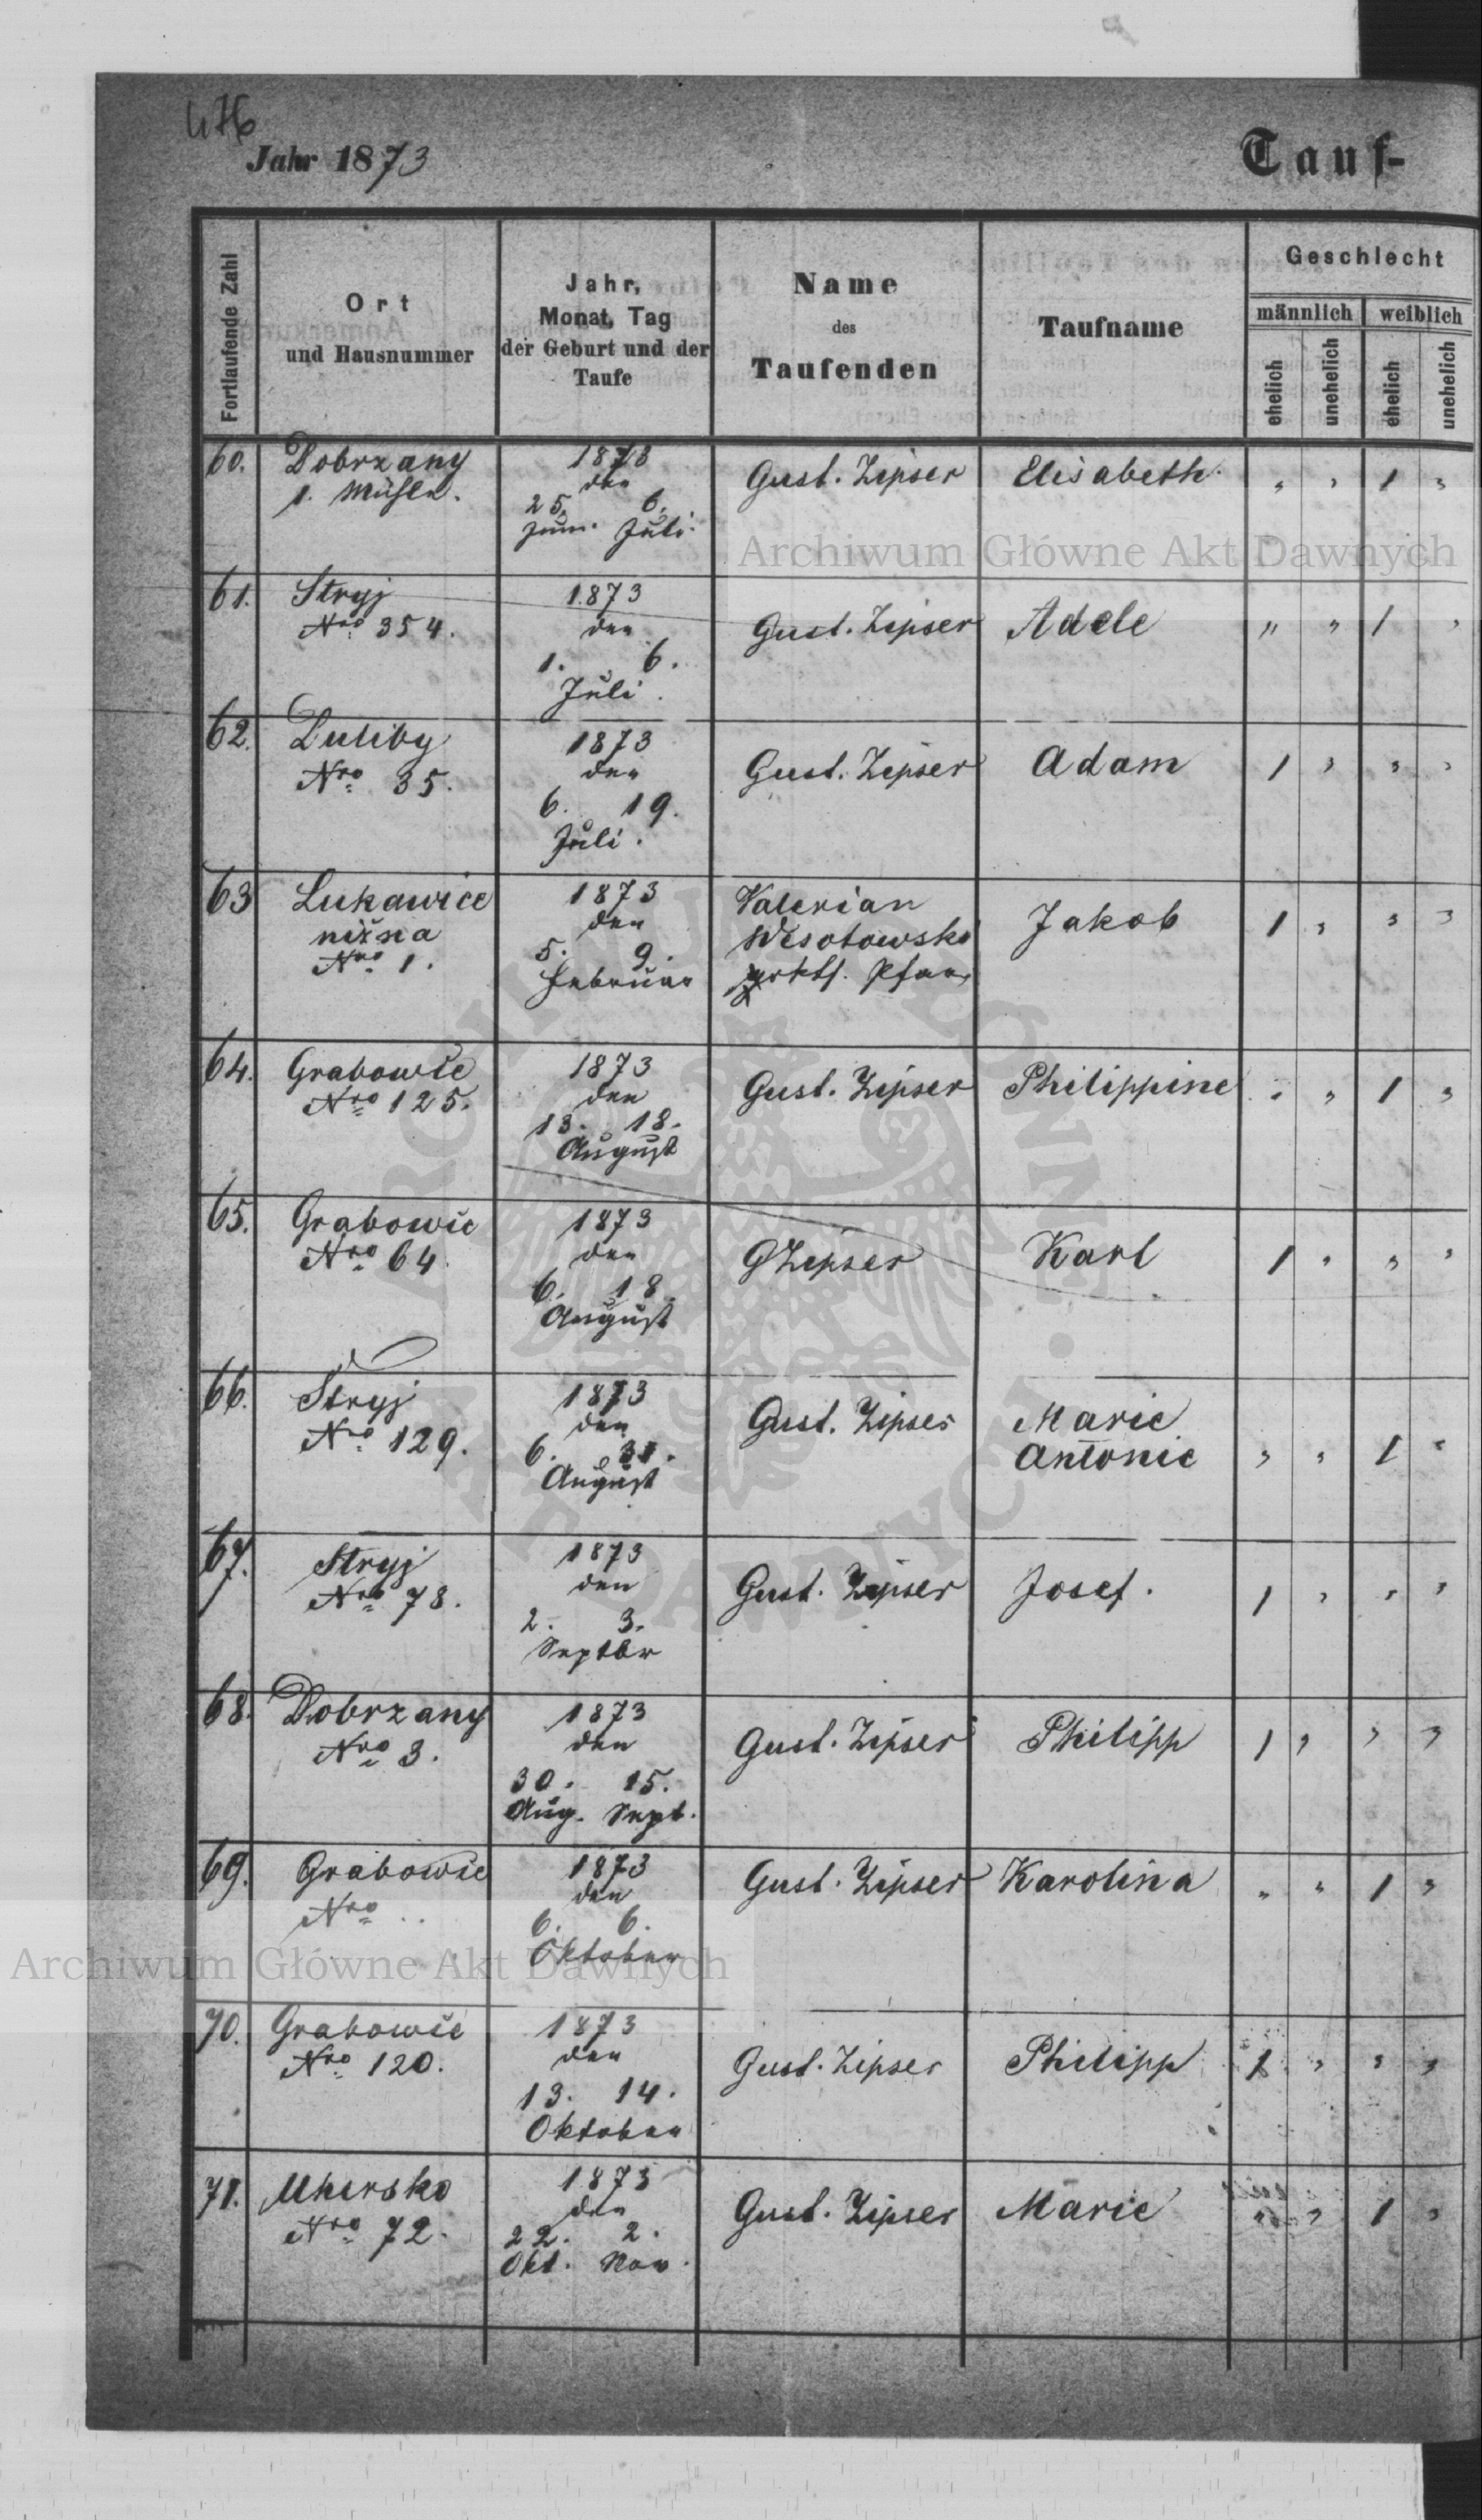 476
Jahr 1873
Tauf-
Fortlaufende Zahl
Ort
und Hausnummer
Jahr,
Monat, Tag
der Geburt und der
Taufe
Name
des
Taufenden
Taufname
Geschlecht
männlich
weiblich
ehelich
unehelich
ehelich
unehelich
60. Dobrzany 1873 Gust. Zipser Elisabeth. " " 1 "
1. Mühle. den
25. 6.
Juni. Juli.
Archiwum Główne Akt Dawnych
61. Stryj 1873 Gust. Zipser Adele " " 1 "
Nro 354. den
1. 6.
Juli.
62. Duliby 1873 Gust. Zipser Adam 1 " " "
Nro 35. den
6. 19.
Juli.
63 Lukawice 1873 Valerian Jakob 1 " " "
nižna den Wesołowski
Nro 1. 5. 9. grkth. Pfarr
Februar
64. Grabowce 1873 Gust. Zipser Philippine " " 1 "
Nro 125. den
13. 18.
August
65. Grabowce 1873 GZipser Karl 1 " " "
Nro 64. den
6. 18.
August
66. Stryj 1873 Gust. Zipser Marie
Nro 129. den Antonie " " 1 "
6. 31.
August
67. Stryj 1873 Gust. Zipser Josef. 1 " " "
Nro 78. den
2. 3.
Septbr
68. Dobrzany 1873 Gust. Zipser Philipp 1 " " "
Nro 3. den
30. 15.
Aug. Sept.
69. Grabowce 1873 Gust. Zipser Karolina " " 1 "
Nro .. den
6. 6.
Oktober
Archiwum Główne Akt Dawnych
70. Grabowce 1873 Gust. Zipser Philipp 1 " " "
Nro 120. den
13. 14.
Oktober
71. Uhersko 1873 Gust. Zipser Marie " " 1 "
Nro 72. den
22. 2.
Okt. Nov.